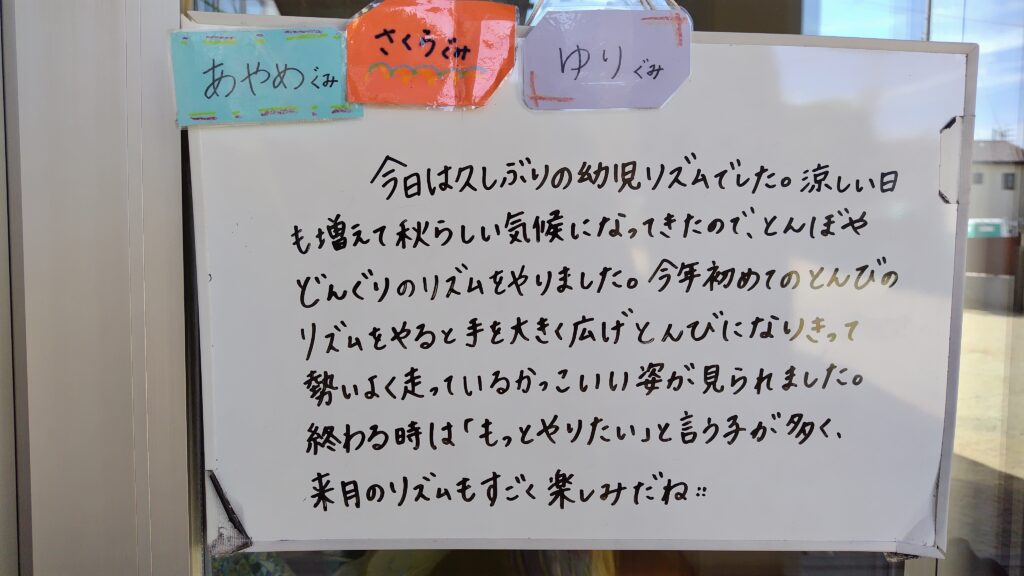 あやめぐみ
さくらぐみ
ゆりぐみ
今日は久しぶりの幼児リズムでした。涼しい日
も増えて秋らしい気候になってきたので、とんぼや
どんぐりのリズムをやりました。今年初めてのとんびの
リズムをやると手を大きく広げとんびになりきって
勢いよく走っているかっこいい姿が見られました。
終わる時は「もっとやりたい」と言う子が多く、
来月のリズムもすごく楽しみだね::